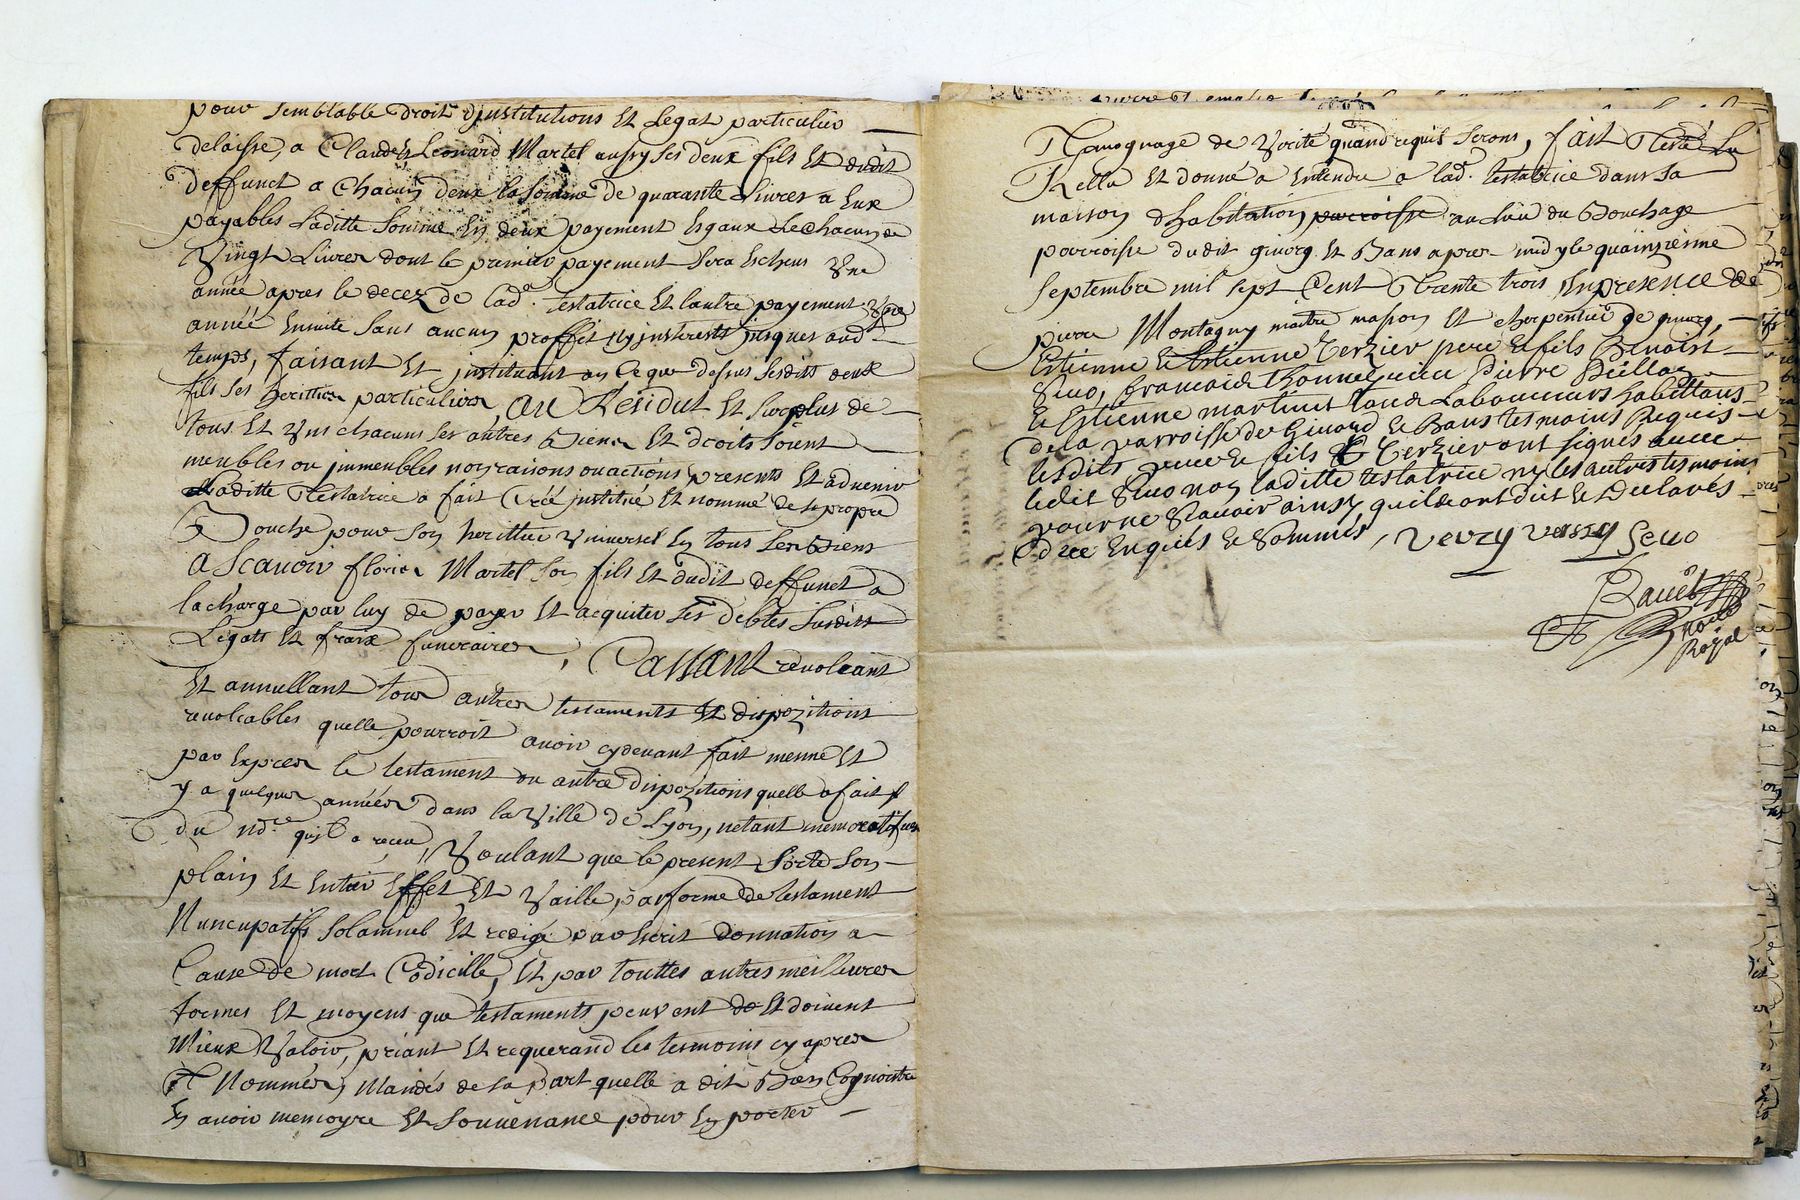 pour semblable droit d'justitutions Et Legat particulier
delaisse, a Claude & Leonard Martel aussy ses deux fils Et dudit
deffunct a Chacun deux la somme de quarante Livres a Eux
payables Laditte Somme En deux payement Egaux de chacun de
Vingt Livres dont le premier payement sera Escheus Une
année apres le decez de lad.e testatrice Et lautre payement Une
année Ensuite Sans aucun proffit ny justerests jusques aud
temps, faisant Et justituant en Ce que dessus sesdits deux
fils ses heritiers particuliers, Au Residut Et surplus de
tous Et Uns chacuns ses autres Biens Et droits soient
meubles ou jmmeubles noms raisons ou actions presents Et advenir
Laditte Testatrice a fait Créé justitue Et nommé de sa propre
Bouche pour son heritier Universel En tous ses Biens
A Scavoir florie Martel son fils Et dudit deffunct a
la charge par luy de payer Et acquiter ses debtes susdits
Legats Et fraix funeraires, Cassant revoleant
Et annullant tous autres testaments Et dispozitions
revolcables quelle pourroit avoir cydevant fait mesme Et
par Exprez le testament ou autre dispozitions quelle a fait
y a quelques années dans la Ville de Lyon, netant memoratifve
du nd.re quil a receu, Voulant que le present Sorte Son
plain Et Entier Effet Et Vaille, par forme de testament
Nuncupatifs solamnel Et redigé par Escrit donnation a
Cause de mort Codicille, Et par touttes autres meilleures
formes Et moyens que testaments peuvent de Et doivent
Mieux Valoir, priant Et requerand les tesmoins cy apres
Nommés, Mandés de sa part quelle a dit Bien Cognoistre
En avoir memoyre Et souvenance pour En porter
Tamognage de Verité quand requis serons, fait Testé Lu
Rellu Et donné a Entendre a lad.e testatrice dans sa
maison dhabitation parroisse au lieu du Bouchage
parroisse dudit givorg Et Bans apres midy le quainzienne
Septembre mil sept Cent Trente trois En presence de
pierre Montagny maitre masson Et cherpentier de givorg,
Estienne & Estienne Verzier pere & fils Benoist
Seuo, francois Thonnerieux Pierre Piellae
& Estienne martinet tous Laboureurs habittans
de la parroisse de Givord & Bans tesmoins Requis
lesdits pere & fils Verzier ont signés avec
ledit Seuo non laditte testatrice ny les autres tesmoins
pour ne scavoir ainsy quils ont dit & declarés
de ce Enquis & Sommés, Verzy Verzy Seuo
Royal